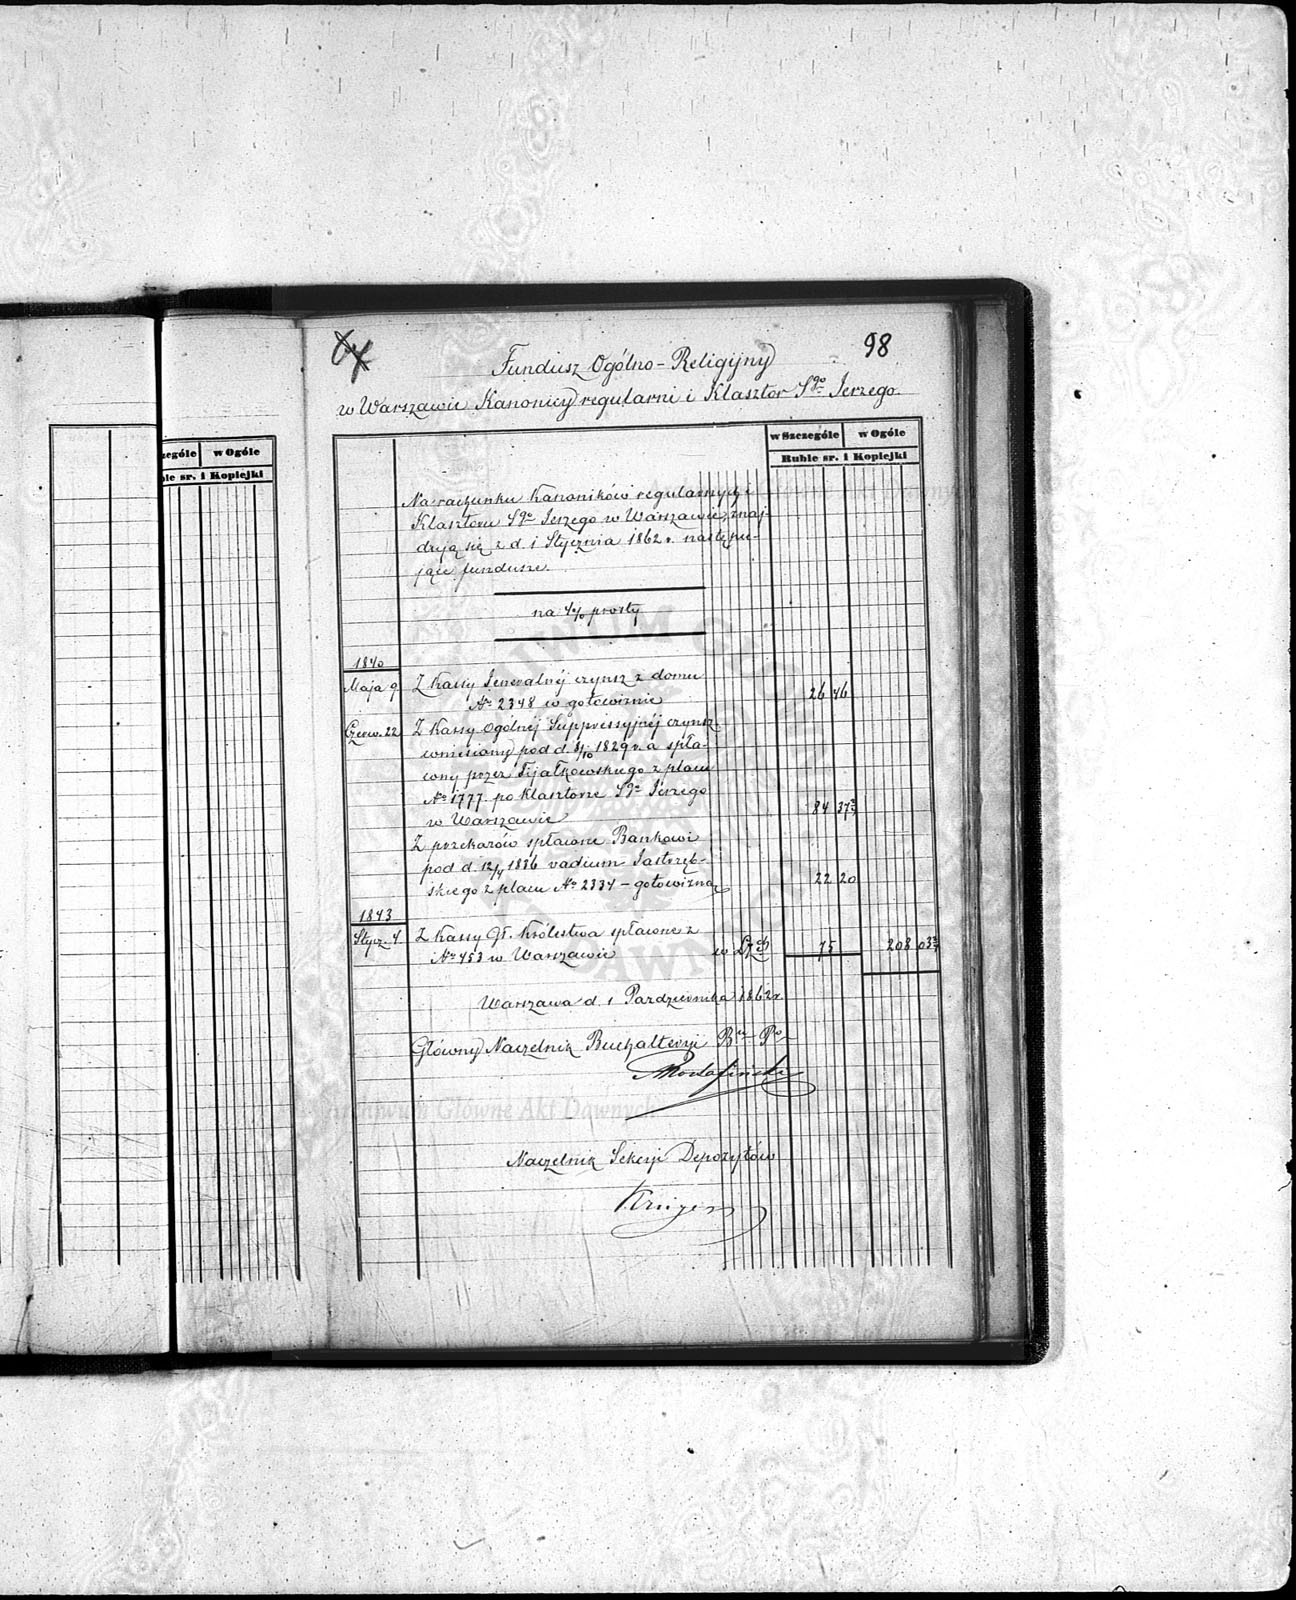 98
Fundusz Ogólno-Religijny
w Warszawie Kanonicy regularni i Klasztor Sgo Jerzego.
w Szczególe w Ogóle
Ruble sr. i Kopiejki
zególe w Ogóle
ble sr. i Kopiejki
Na rachunku Kanoników regularnych i
Klasztoru Sgo Jerzego w Warszawie, znaj-
dują się z d. 1 Stycznia 1862 r. następu-
jące fundusze.
na 4% prosty
1840
Maja 9. Z Kassy Jeneralnéj czynsz z domu
No 2348 w gotowiznie 26 46
Czerw. 22 Z Kassy Ogólnéj Suppressyjnéj czynsz
wniesiony pod d. 1829 r. a spła-
cony przez Fijałkowskiego z placu
No 1777. po klasztorze Sgo Jerzego
w Warszawie 84 37
Z przekazów spłacone Bankowi
pod d. 12/4 1836 vadium Jastrzęb-
skiego z placu No 2334 – gotowizną 22 20
1843
Stycz. 4. Z Kassy Gł. Królestwa spłacone z
No 453 w Warszawie w 75 208 03
Warszawa d. 1 Pazdziernika 1862 r.
Główny Naczelnik Buchalteryi
Naczelnik Sekcyi Depozytów
Krüger
Archiwum Główne Akt Dawnych